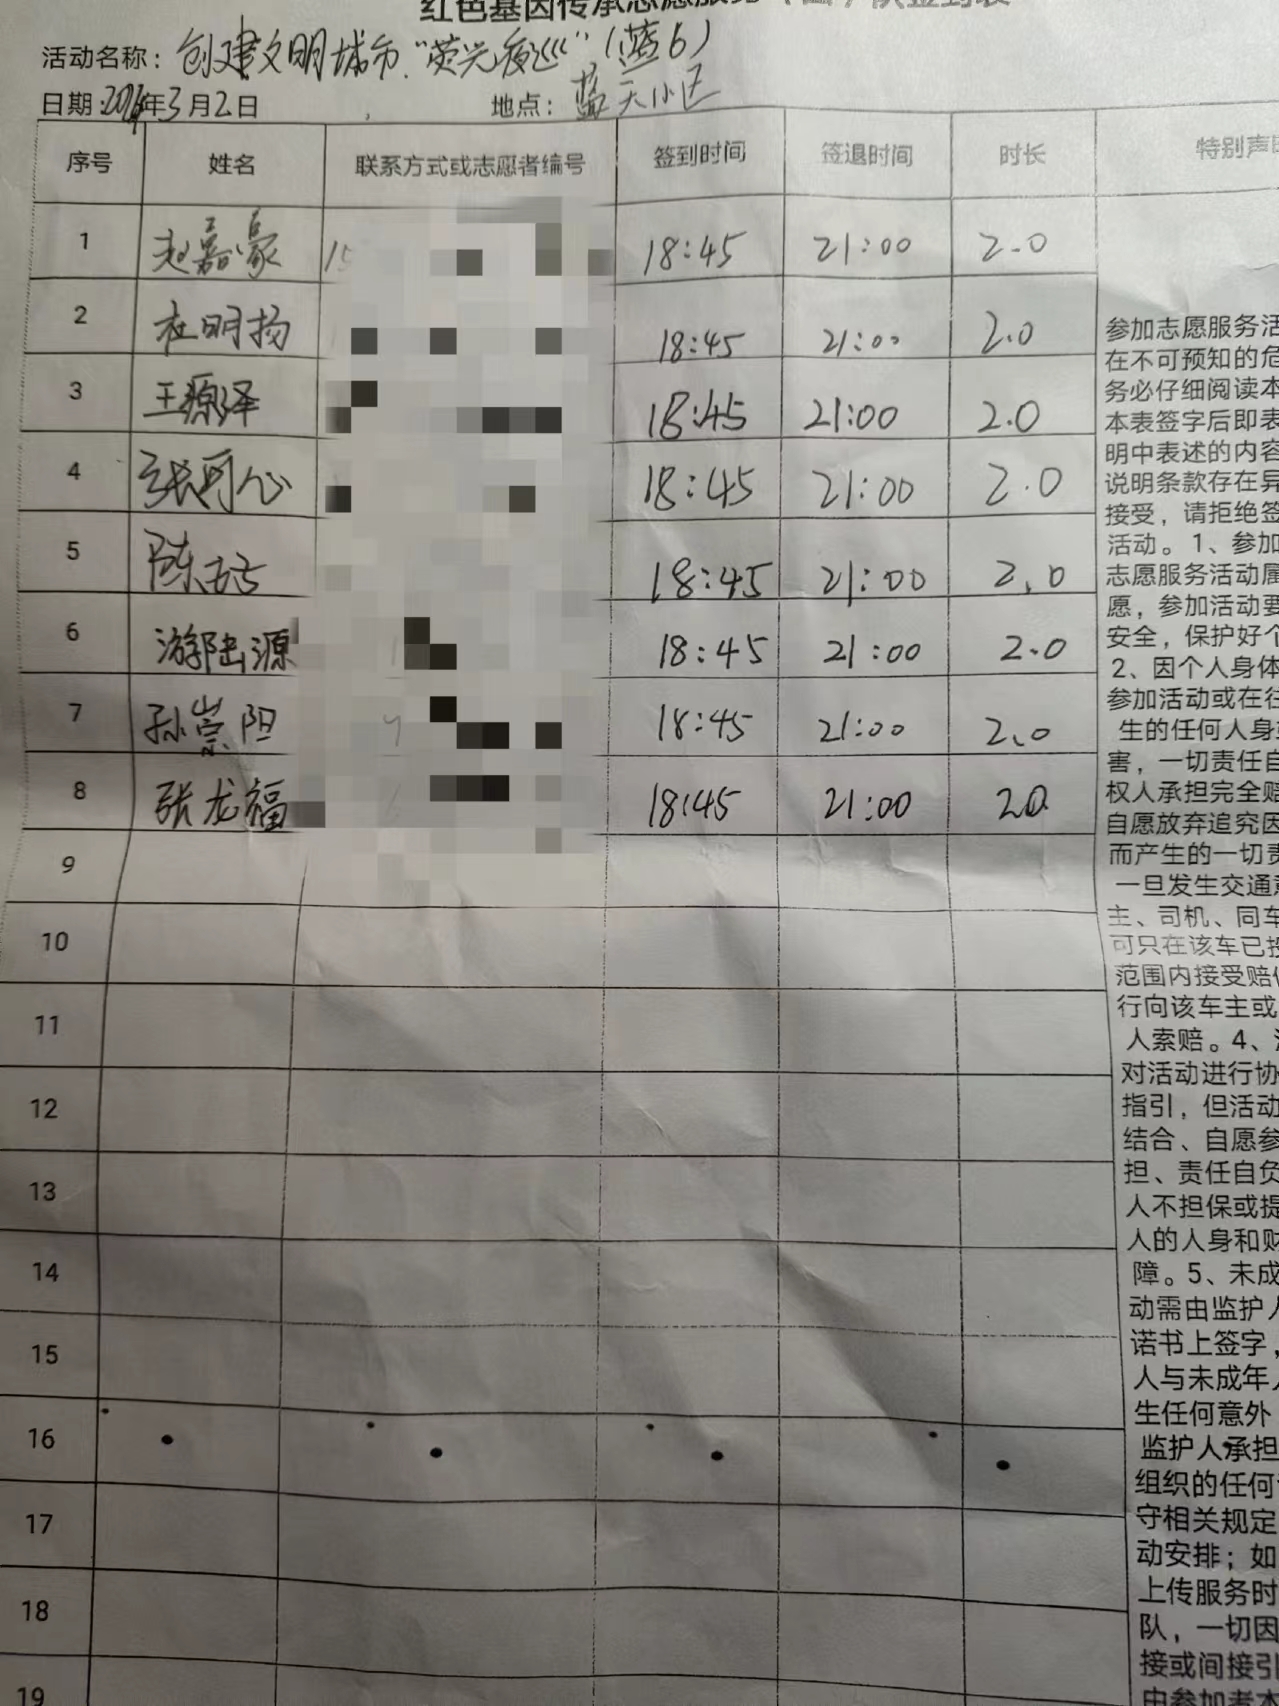 红色基因传承志愿服务
签到表
活动名称：创建文明城市."荧光夜巡"(蓝6)
日期:2024年3月2日 地点：蓝天小区
序号 姓名 联系方式或志愿者编号 签到时间 签退时间 时长 特别声明
1 赵嘉豪 15 18:45 21:00 2.0
2 杜明扬 18:45 21:00 2.0
3 王源泽 18:45 21:00 2.0
4 张可心 18:45 21:00 2.0
5 陈 18:45 21:00 2.0
6 游陆源 18:45 21:00 2.0
7 孙崇阳 18:45 21:00 2.0
8 张龙福 18:45 21:00 2.0
9
10
11
12
13
14
15
16
17
18
19
参加志愿服务活
在不可预知的危
务必仔细阅读本
本表签字后即表
明中表述的内容
说明条款存在异
接受，请拒绝签
活动。1、参加
志愿服务活动属
愿，参加活动要
安全，保护好个
2、因个人身体
参加活动或在往
生的任何人身
害，一切责任自
权人承担完全赔
自愿放弃追究因
而产生的一切责
一旦发生交通意
主、司机、同车
可只在该车已投
范围内接受赔偿
行向该车主或
人索赔。4、
对活动进行协
指引，但活动
结合、自愿参
担、责任自负
人不担保或提
人的人身和财
障。5、未成
动需由监护人
诺书上签字，
人与未成年人
生任何意外
监护人承担
组织的任何
守相关规定
动安排；如
上传服务时
队，一切因
接或间接引
由参加者本